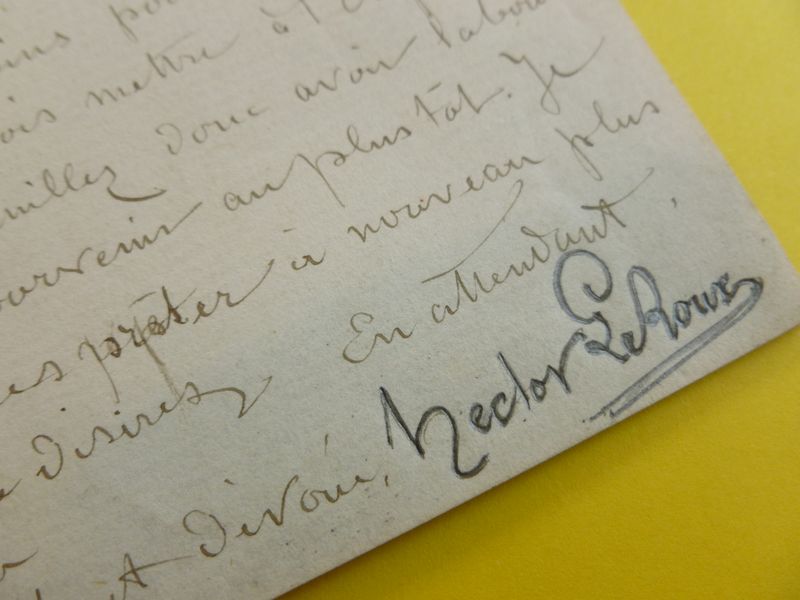 mettre à
veuillez donc avoir
parvenir au plus tôt. Je
les prêter à nouveau plus
desirez En attendant,
dévoué, Hector Le Roux